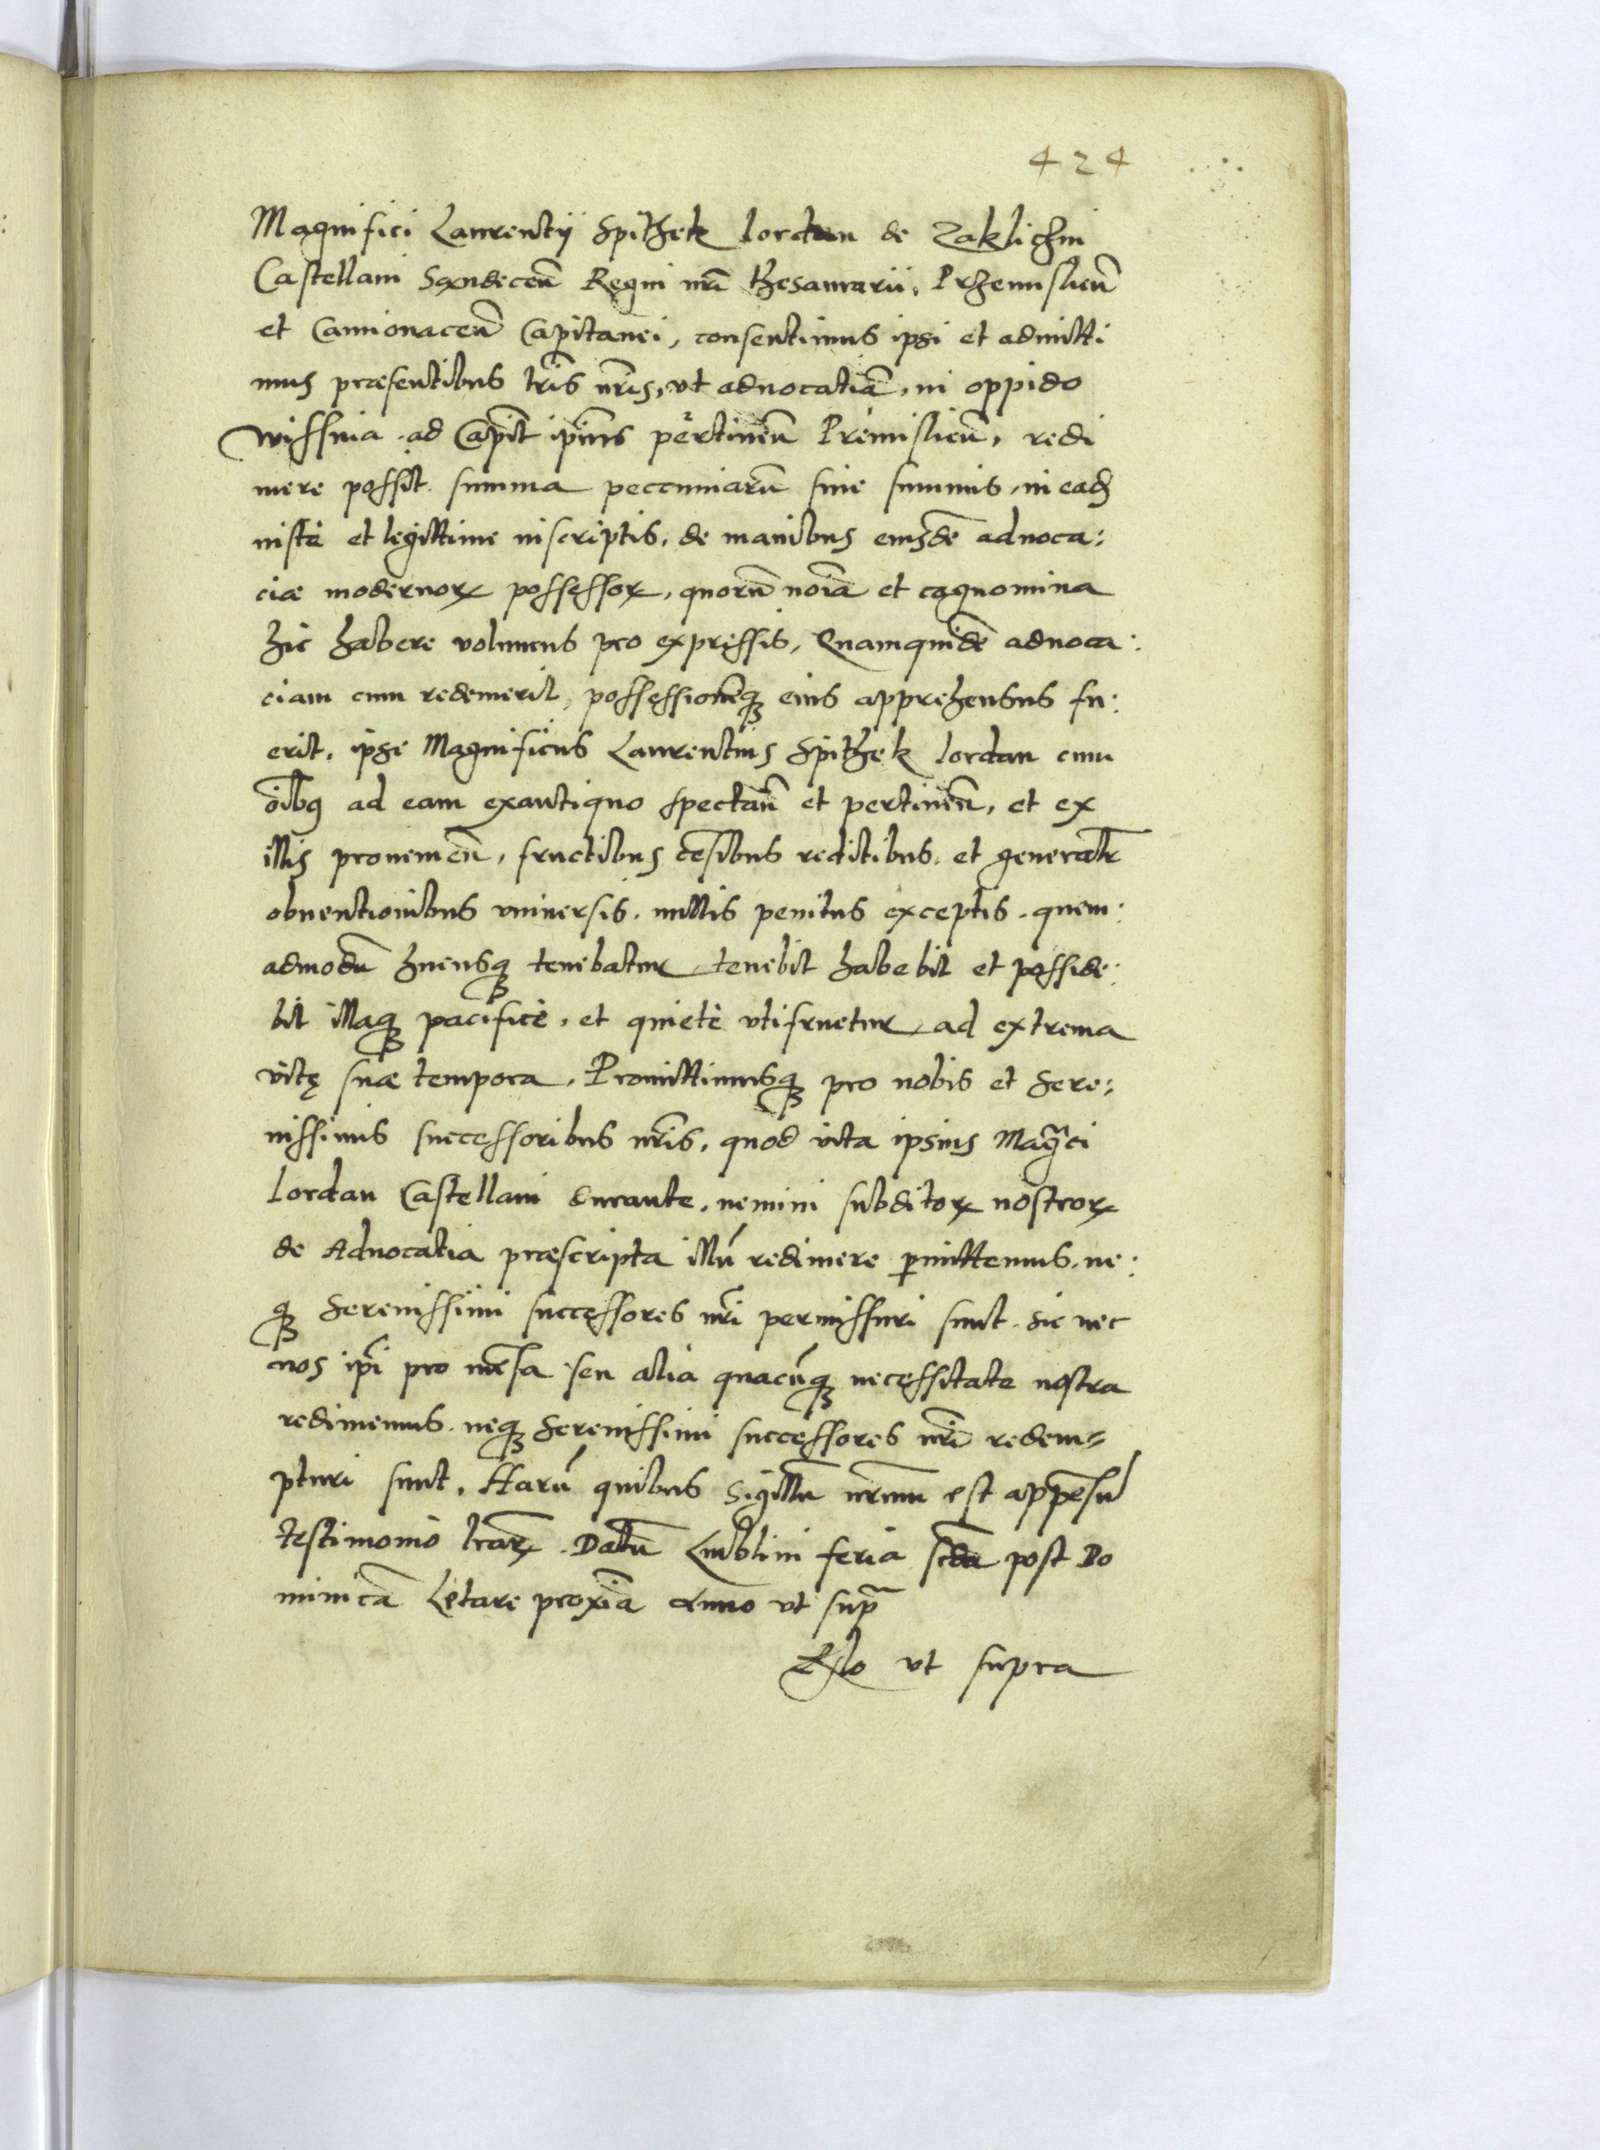 424
Magnifici Laurentij Spithek Iordan de Zaklichin
Castellani Sandeceñ Regni nrĩ thesaurarii, Przemislieñ
et Camionaceñ Capitanei, consentimus ipsi et admitti
mus præsentibus lrĩs nrĩs, vt aduocatiã, in oppido
wissnia ad Capit ipiũs pertineñ Premislieñ, redi
mere possit summa peccuniarũ siue summis, in eadẽ
iustè et legittime inscriptis, de manibus eiusdẽ aduoca:
ciæ modernorꝝ possessorꝝ, quorũ noĩa et cognomina
hic habere volumus pro expressis, Quamquidẽ aduoca:
ciam cum redemerit, possessionẽqꝫ eius apprehensus fu:
erit, ipse Magnificus Laurentius Spithek Iordan cum
oĩbꝯ ad eam exantiquo spectañ et pertineñ, et ex
illis prouenieñ, fructibus cẽsibus reditibus, et generalr̃
obuentionibus vniuersis, nullis penitus exceptis, quem:
admodũ hucusqꝫ tenebatur, tenebit habebit et posside:
bit illaqꝫ pacificè, et quietè vtifruetur, ad extrema
vitę suæ tempora, Promittimusqꝫ pro nobis et Sere,
nissimis successoribus nrĩs, quod vita ipsius Mag̃ci
Iordan Castellani durante, nemini subditorꝝ nostrorꝝ
de Aduocatia præscripta illũ redimere ꝑmittemus, ne:
qꝫ Serenissimi successores nrĩ permissuri sunt. Sic nec
nos ip̃i pro mẽsa seu alia quacũqꝫ necessitate nostra
redimemus. neqꝫ Serenissimi successores nrĩ redem=
pturi sunt, Harũ quibus Sigillũ nrũm est appẽsũ
testimonio lrãrꝝ. Datũ Lublini feria scđa post Do
minicã Letare proxĩa Anno vt supᵃ
Rlo vt supra